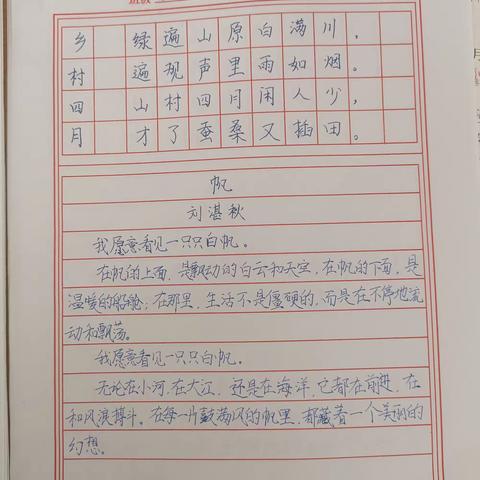 乡 绿遍山原白满川，
村 遍规声里雨如烟。
四 山村四月闲人少，
月 才了蚕桑又插田。
帆
刘湛秋
我愿意看见一只只白帆。
在帆的上面，是飘动的白云和天空，在帆的下面，是
温暖的船舱；在那里，生活不是僵硬的，而是在不停地流
动和飘荡。
我愿意看见一只只白帆。
无论在小河，在大江，还是在海洋，它都在前进，在
和风浪搏斗。在每一片鼓满风的帆里，都藏着一个美丽的
幻想。